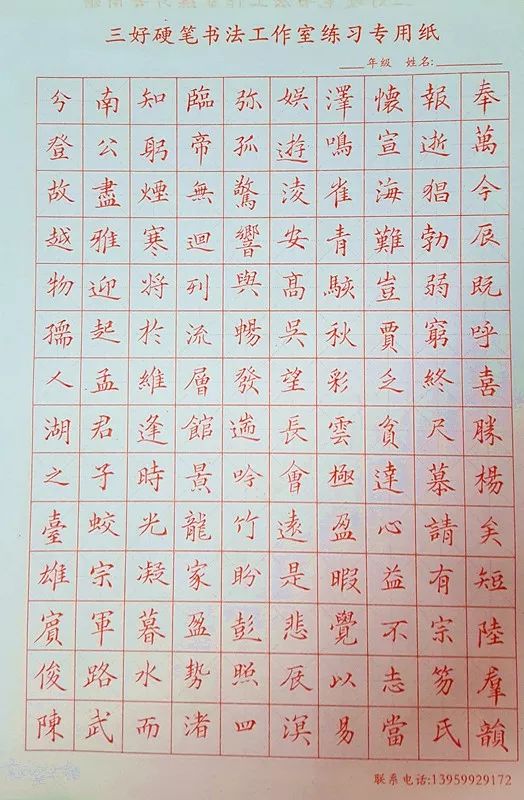 三好硬笔书法工作室练习专用纸
年级 姓名:
兮南知臨弥娱澤懷報奉
登公躬帝孤遊鳴宣逝萬
故盡煙無驚淩雀海猖今
越雅寒迴響安青難勃辰
物迎將列與高駭豈弱既
孺起於流暢吳秋賈窮呼
人孟維層發望彩乏終喜
湖君逢館遄長雲貧尺勝
之子時景吟會極達慕楊
臺蛟光龍竹遠盈心請矣
雄宗凝家盼是暇益有矩
賓軍暮盈彭悲覺不宗陸
俊路水勢照辰以志笏羣
陳武而渚四溟易當氏韻
联系电话:13959929172